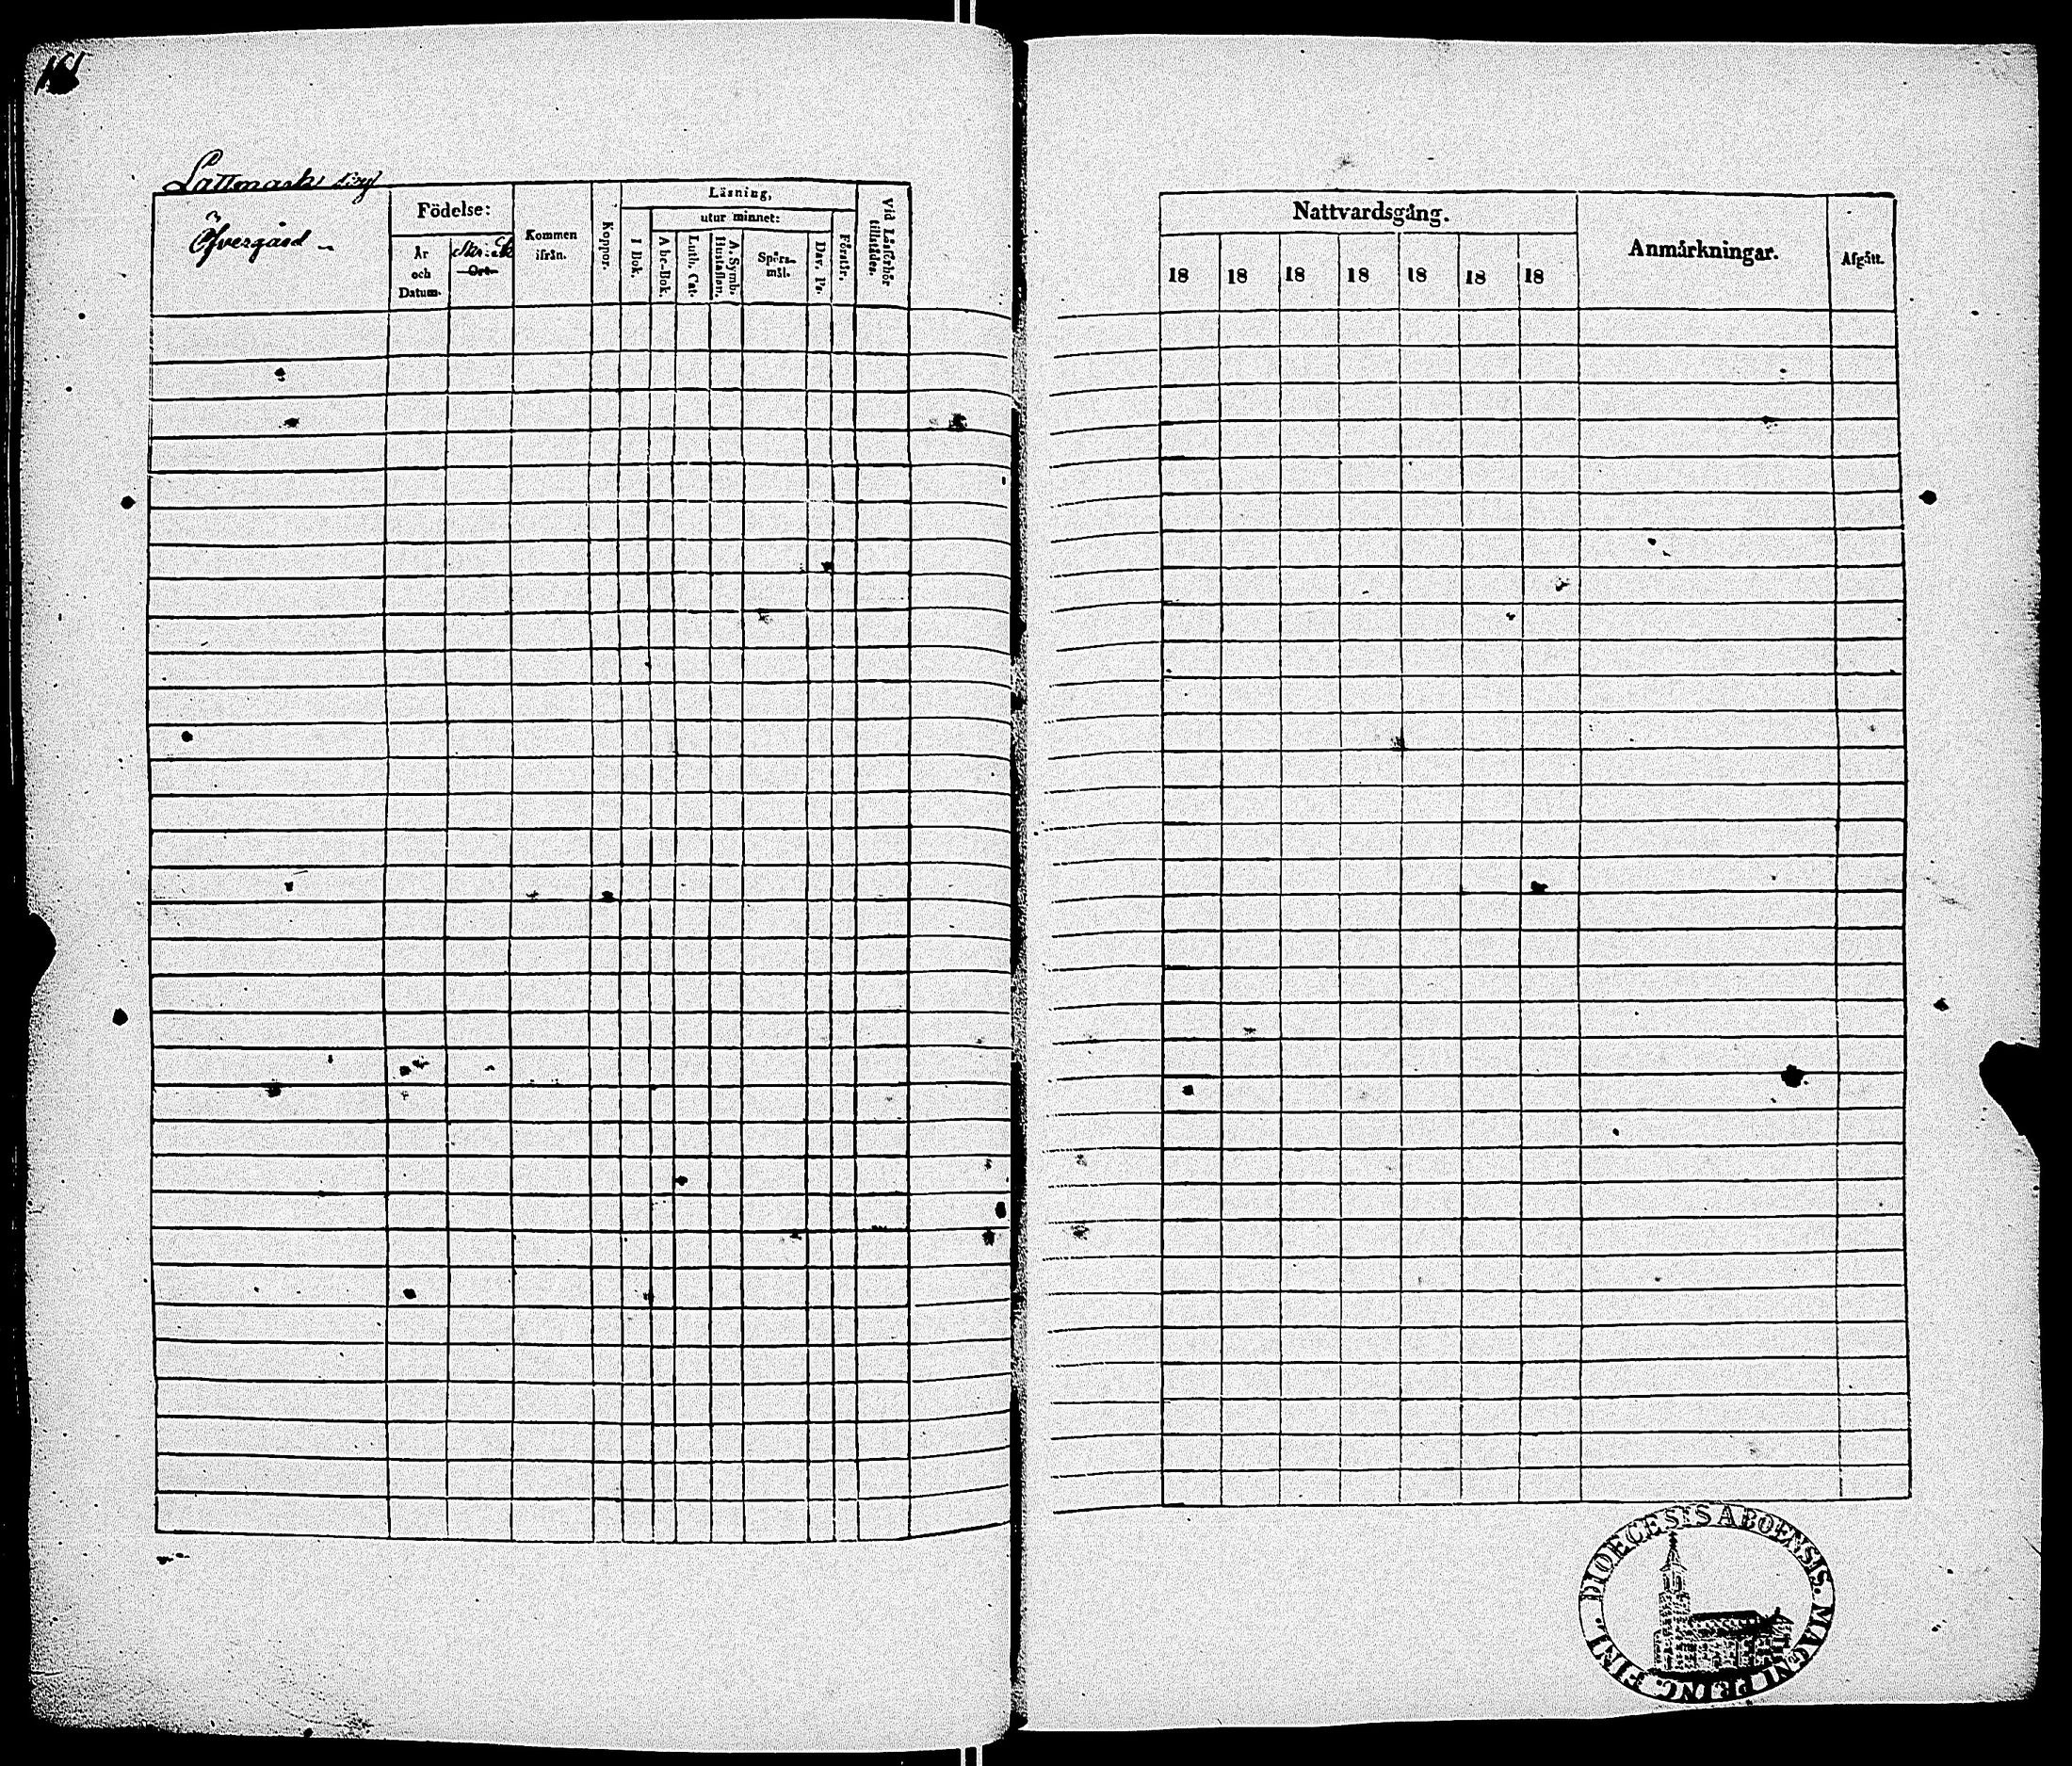 Lattmark by
Öfvergård
Födelse:
År och Datum.
Ort
Kommen ifrån.
Koppor.
Läsning,
utur minnet:
I Bok.
Abc-Bok.
Luth. Cat.
A. Symb. Hustaflan.
Spörs-mål.
Dav. Ps.
Förstår.
Vid Läsförhör tillstädes.
Nattvardsgång.
18 18 18 18 18 18 18
Anmärkningar.
Afgått.
DIOECESIS ABOENSIS. MAGNI PRINC. FINL.